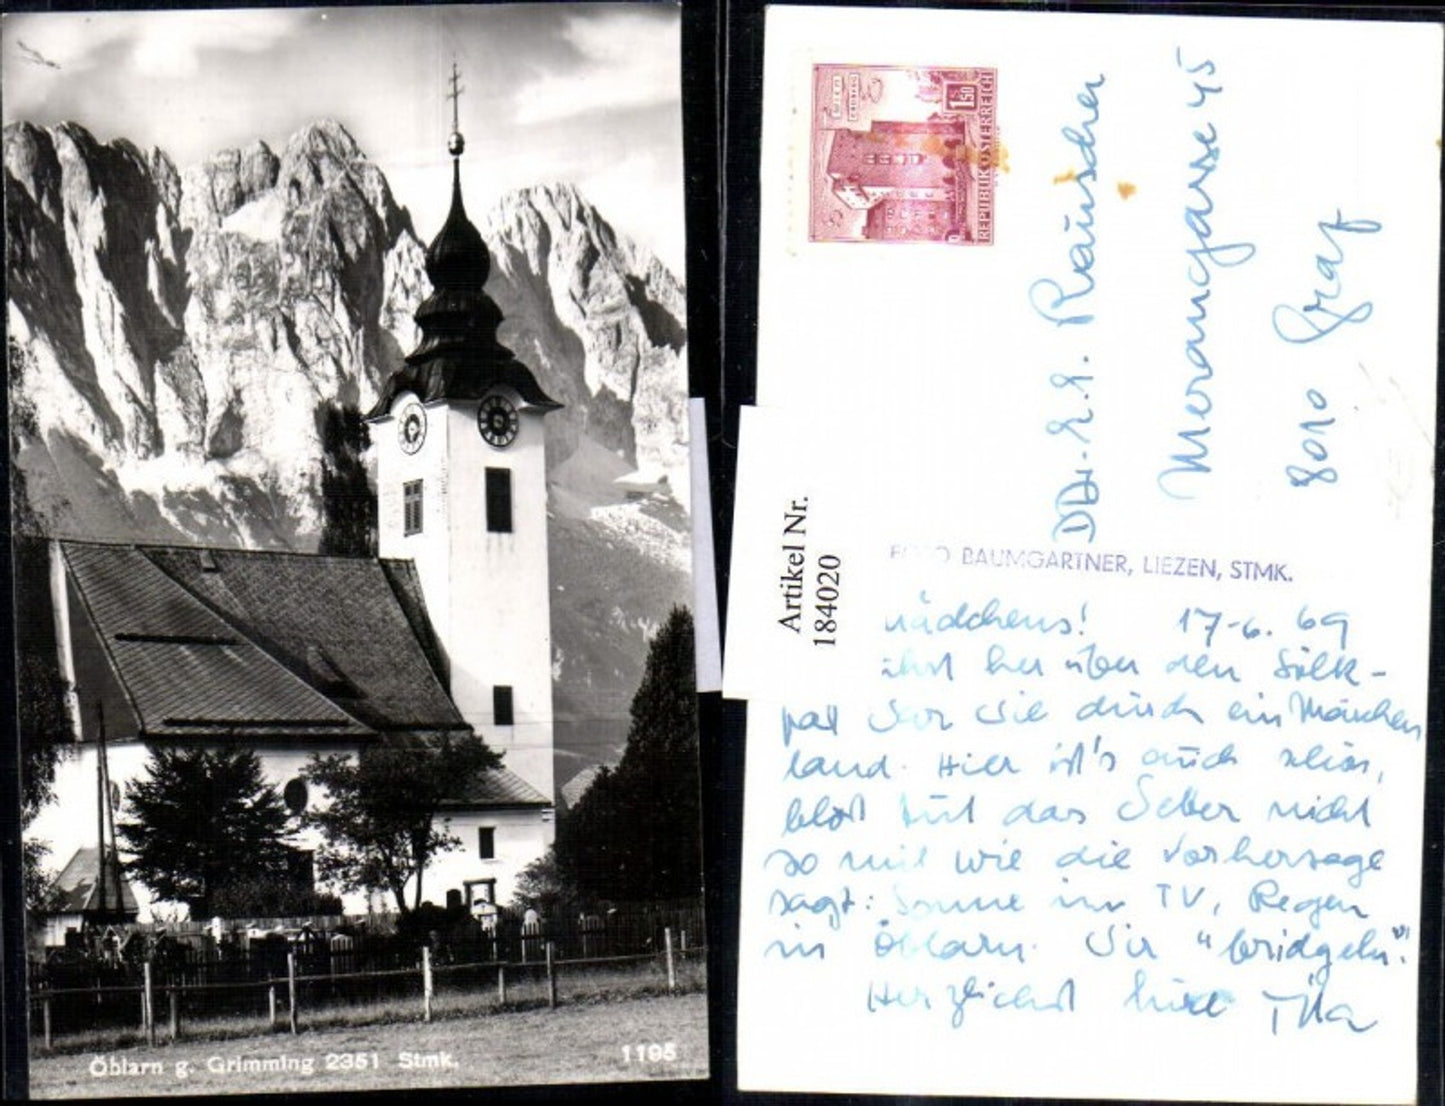 Öblarn g. Grimming 2351 Stmk.
1195
1.50
S
REPUBLIK ÖSTERREICH
Rauscher
Merangasse 45
8010 Graz
Artikel Nr.
184020
FOTO BAUMGARTNER, LIEZEN, STMK.
mädchens! 17-6. 69
her über den Sölk-
paß durch ein Märchen
land. Hier ist's auch schön,
bloß tut das Wetter nicht
so mit wie die Vorhersage
sagt: Sonne im TV, Regen
in Öblarn. Wir "bridgeln".
Herzlichst